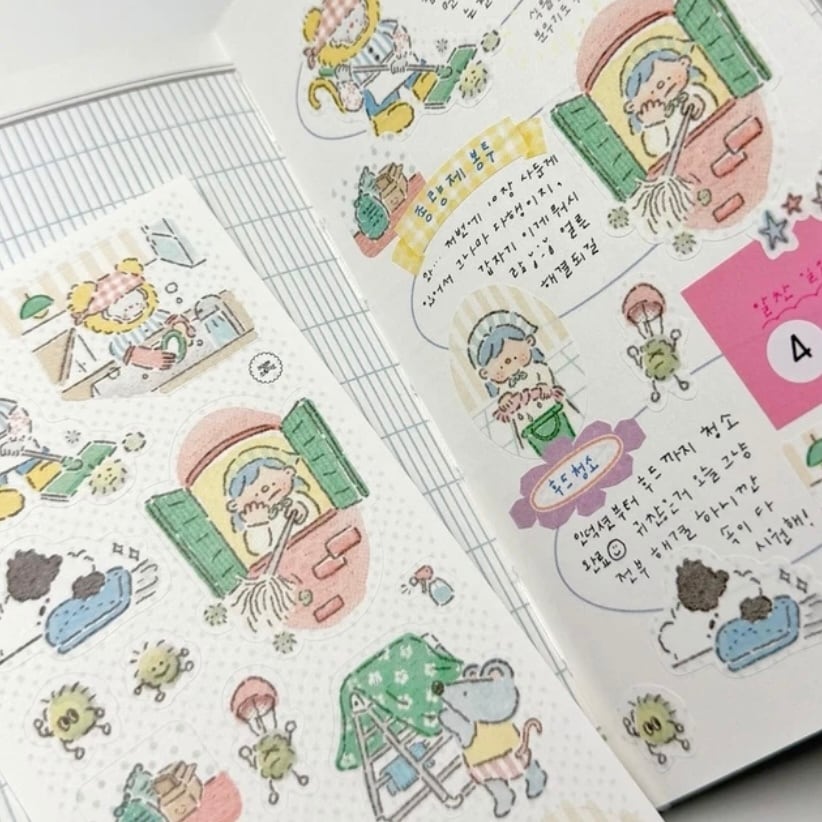 종량제 봉투
와... 저번에 10장 사둔게
있어서 그나마 다행이지.
갑자기 이게 뭐시
얼른
해결되길
알찬 일
4
후드청소
인덕션부터 후드까지 청소
완료 귀찮은게 오늘 그냥
전부 해결 하니깐
속이 다
시원해!